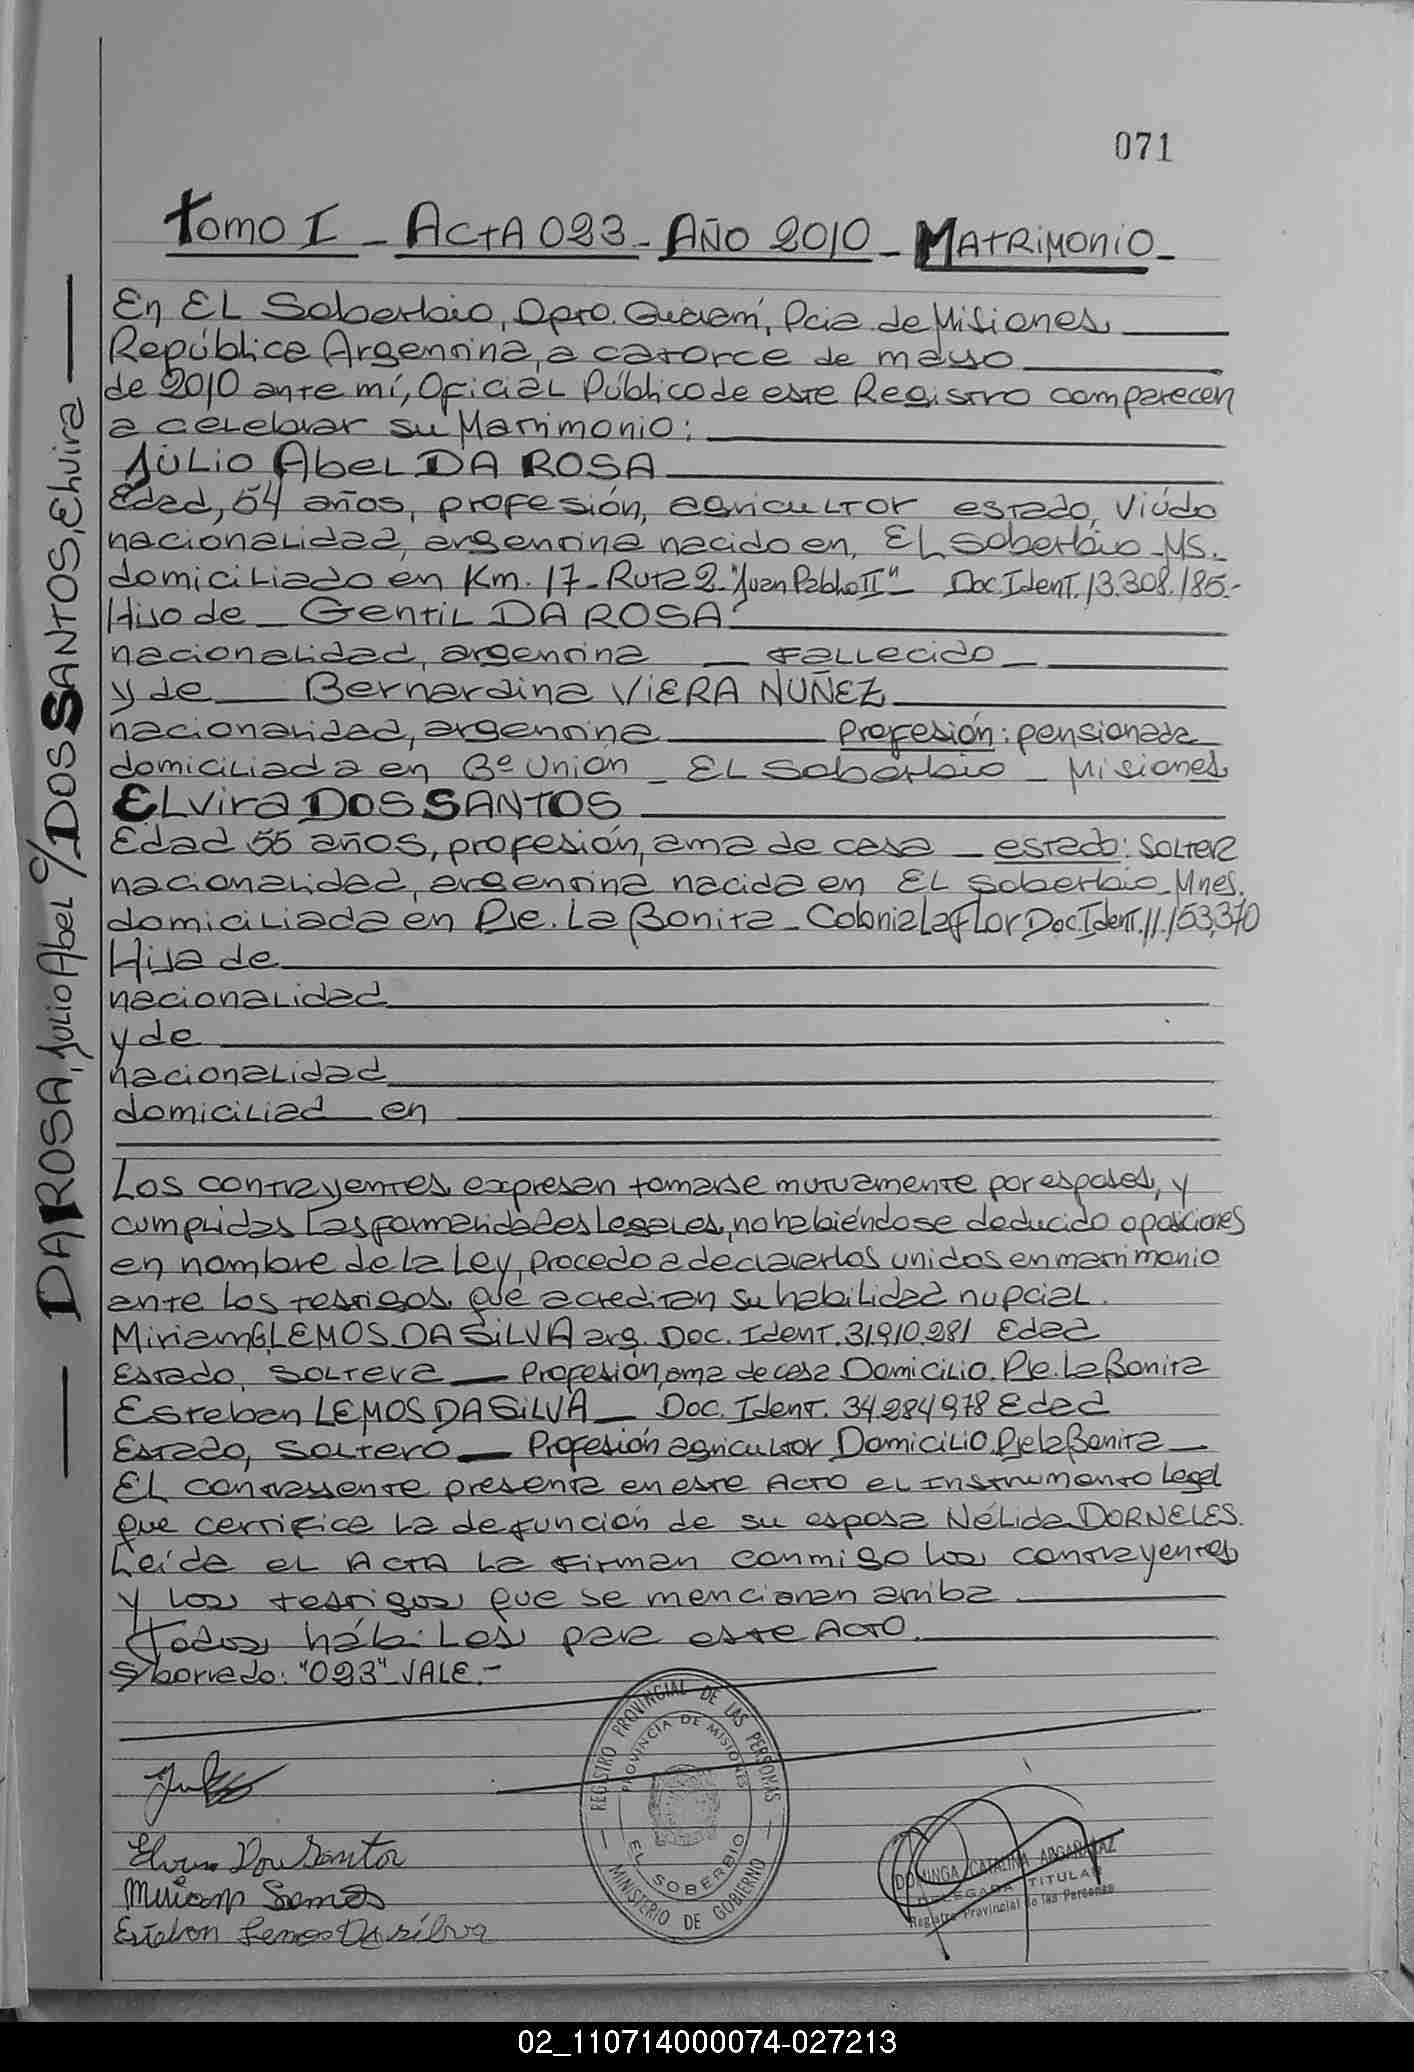 071
Tomo I - ACTA 023 - AÑO 2010 - MATRIMONIO -
En EL Soberbio, Dpto. Guaraní, Pcia. de Misiones,
República Argentina, a catorce de mayo
de 2010 ante mí, Oficial Público de este Registro comparecen
a celebrar su Matrimonio:
Julio Abel DA ROSA
Edad, 54 años, profesión, agricultor estado, Viúdo
nacionalidad, argentina nacido en, EL Soberbio - MS.
domiciliado en Km. 17 - Ruta 2 - "Juan Pablo II" - Doc. Ident. 13.308.185.-
Hijo de - Gentil DA ROSA
nacionalidad, argentina - Fallecido -
y de Bernardina VIERA NUÑEZ
nacionalidad, argentina Profesión: pensionada
domiciliada en Bº Unión - EL Soberbio - Misiones
ELVira DOS SANTOS
Edad 55 años, profesión, ama de casa - estado: SOLTERA
nacionalidad, argentina nacida en EL Soberbio - Mnes.
domiciliada en Pje. La Bonita - Colonia La Flor Doc. Ident. 11.153.370
Hija de
nacionalidad
y de
nacionalidad
domiciliad en
Los contrayentes expresan tomarse mutuamente por esposos, y
cumplidas las formalidades legales, no habiéndose deducido oposiciones
en nombre de la Ley, procedo a declararlos unidos en matrimonio
ante los testigos que acreditan su habilidad nupcial.
Miriam G. LEMOS DA SILVA arg. Doc. Ident. 31.910.281 Edad
Estado, SOLTERA - Profesión, ama de casa Domicilio. Pje. La Bonita
Esteban LEMOS DA SILVA - Doc. Ident. 34.284.978 Edad
Estado, SOLTERO - Profesión agricultor Domicilio. Pje la Bonita -
EL contrayente presenta en este ACTO el Instrumento Legal
que certifica la defunción de su esposa Nélida DORNELES.
Leída el ACTA la firman conmigo los contrayentes
y los testigos que se mencionan arriba
Todos hábiles para este ACTO.
S/borrado: "023" VALE.-
DA ROSA, Julio Abel c/ DOS SANTOS, Elvira
Elvira Dos Santos
Miriam Lemos
Esteban Lemos Da silva
REGISTRO PROVINCIAL DE LAS PERSONAS
PROVINCIA DE MISIONES
EL SOBERBIO
MINISTERIO DE GOBIERNO
DOMINGA CATALINA ARGARAÑAZ
DELEGADA TITULAR
Registro Provincial de las Personas
02_110714000074-027213